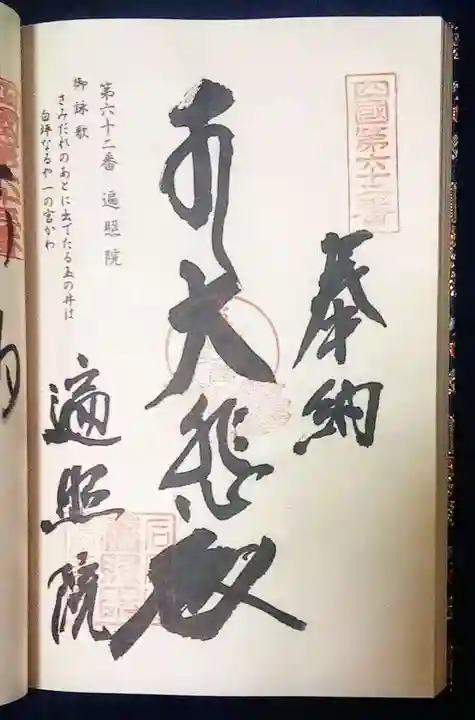 四國第六十二番
奉納
大悲殿
遍照院
第六十二番 遍照院
御詠歌
さみだれのあとに出でたる玉の井は
白坪なるや一の宮かわ